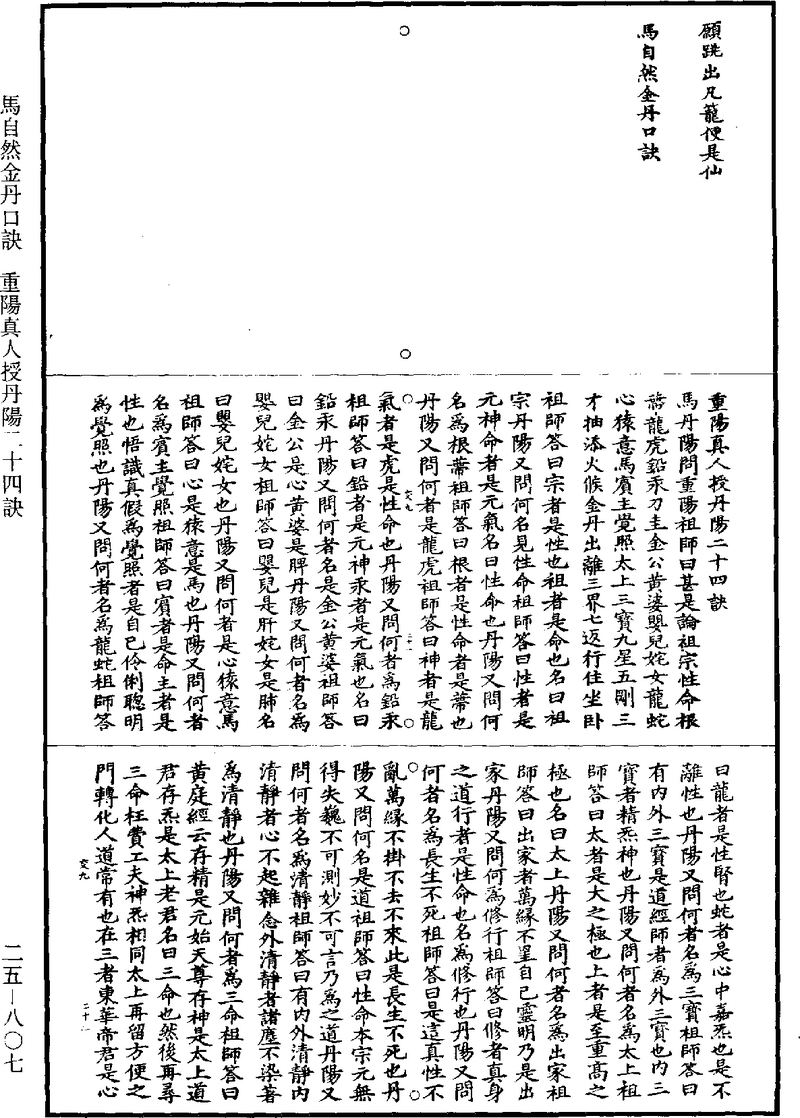 願跳出凡籠便是仙
馬自然金丹口訣
重陽真人授丹陽二十四訣
馬丹陽問重陽祖師曰甚是論祖宗性命根
蒂龍虎鉛汞刀圭金公黃婆嬰兒姹女龍蛇
心猿意馬賓主覺照太上三寶九星五剛三
才抽添火候金丹出離三界七返行住坐卧
祖師答曰宗者是性也祖者是命也名曰祖
宗丹陽又問何名見性命祖師答曰性者是
元神命者是元氣名曰性命也丹陽又問何
名為根蒂祖師答曰根者是性命者是蒂也
丹陽又問何者是龍虎祖師答曰神者是龍
氣者是虎是性命也丹陽又問何者為鉛汞
祖師答曰鉛者是元神汞者是元氣也名曰
鉛汞丹陽又問何者名是金公黃婆祖師答
曰金公是心黃婆是脾丹陽又問何者名為
嬰兒姹女祖師答曰嬰兒是肝姹女是肺名
曰嬰兒姹女也丹陽又問何者是心猿意馬
祖師答曰心是猿意是馬也丹陽又問何者
名為賓主覺照祖師答曰賓者是命主者是
性也悟識真假為覺照者是自己伶俐聰明
為覺照也丹陽又問何者名為龍蛇祖師答
曰龍者是性腎也蛇者是心中嘉炁也是不
離性也丹陽又問何者名為三寶祖師答曰
有內外三寶是道經師者為外三寶也內三
寶者精炁神也丹陽又問何者名為太上祖
師答曰太者是大之極也上者是至重高之
極也名曰太上丹陽又問何者名為出家祖
師答曰出家者萬緣不罣自己靈明乃是出
家丹陽又問何為修行祖師答曰修者真身
之道行者是性命也名為修行也丹陽又問
何者名為長生不死祖師答曰是這真性不
亂萬緣不掛不去不來此是長生不死也丹
陽又問何名是道祖師答曰性命本宗元無
得失巍不可測妙不可言乃為之道丹陽又
問何者名為清靜祖師答曰有內外清靜內
清靜者心不起雜念外清靜者諸塵不染著
為清靜也丹陽又問何者為三命祖師答曰
黃庭經云存精是元始天尊存神是太上道
君存炁是太上老君名曰三命也然後再尋
三命枉費工夫神炁相同太上再留方便之
門轉化人道常有也在三者東華帝君是心
交九
二十一
馬自然金丹口訣　重陽真人授丹陽二十四訣
二五—八〇七